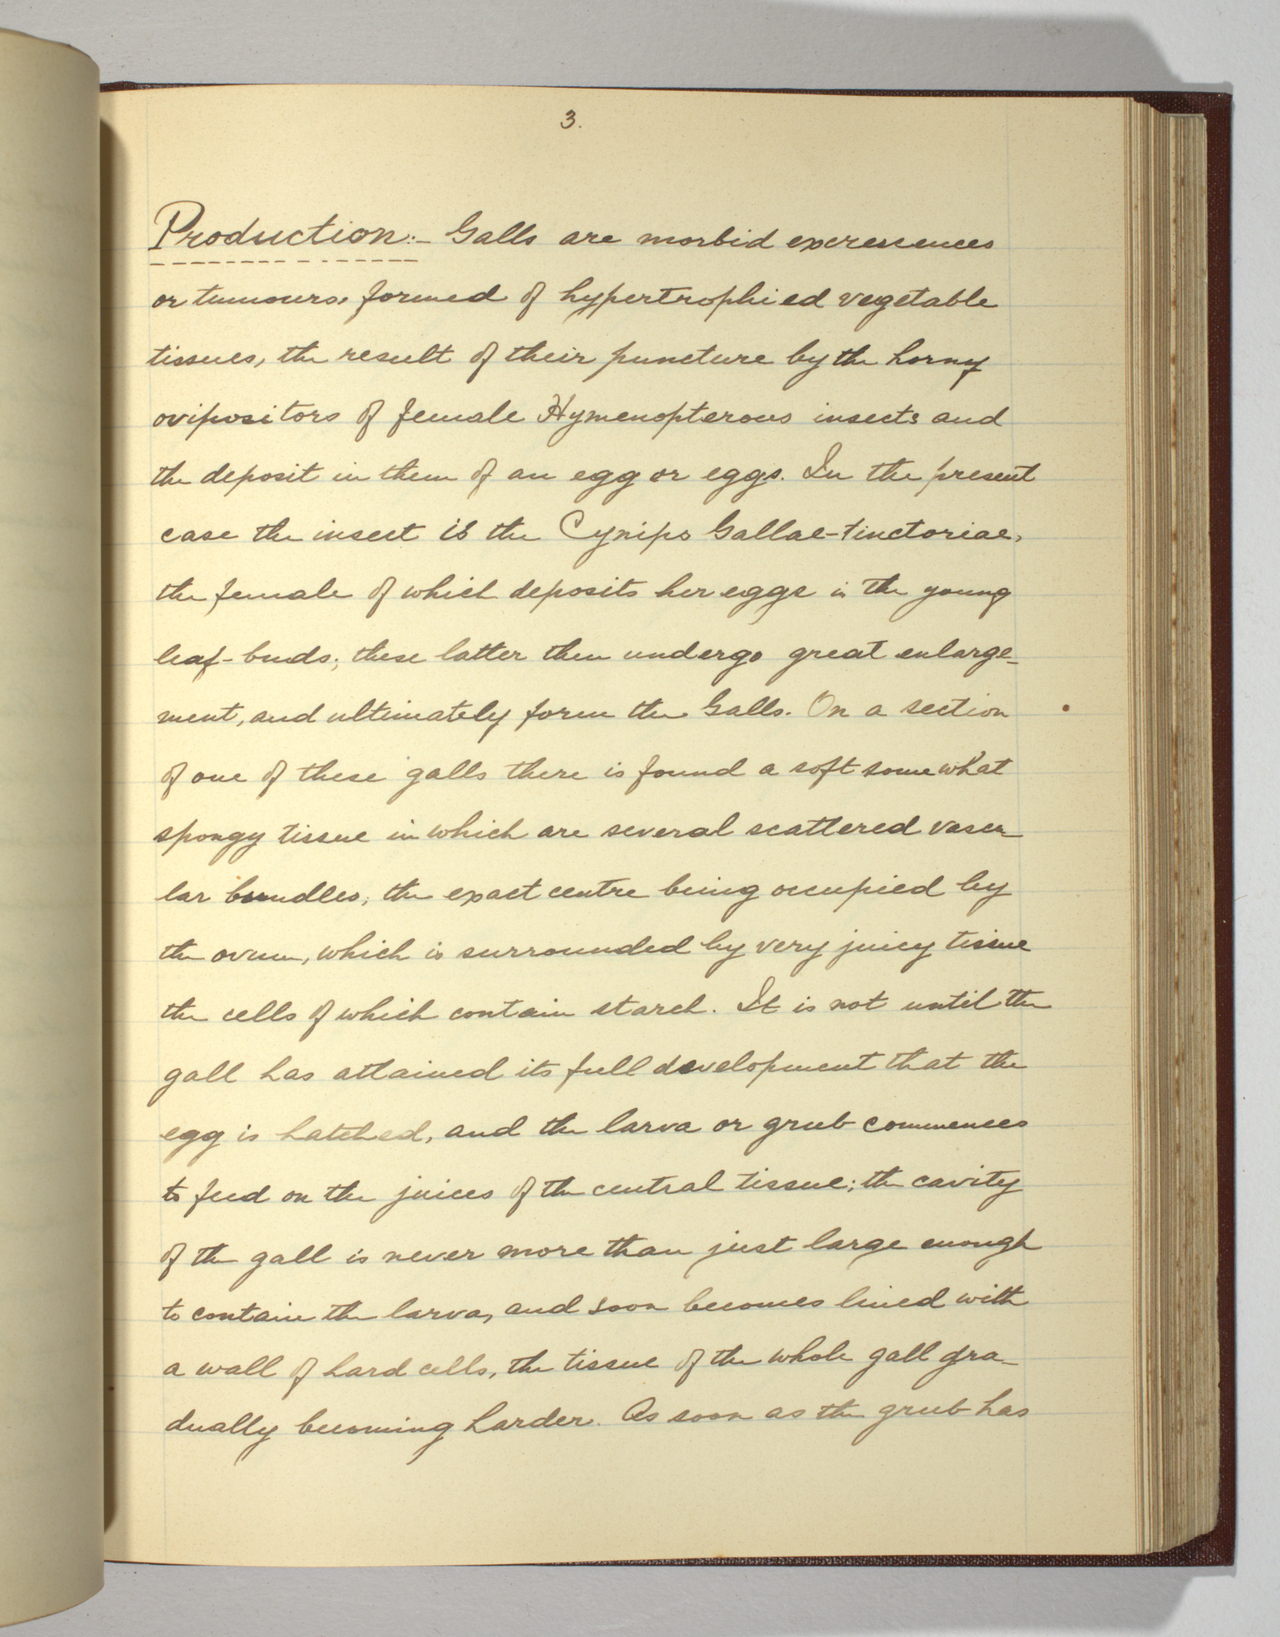 3.
Production:- Galls are morbid excrescences
or tumours, formed of hypertrophied vegetable
tissues, the result of their puncture by the horny
ovipositors of female Hymenopterous insects and
the deposit in them of an egg or eggs. In the present
case the insect is the Cynips Gallae-tinctoriae,
the female of which deposits her eggs in the young
leaf-buds; these latter then undergo great enlarge-
ment, and ultimately form the Galls. On a section
of one of these galls there is found a soft somewhat
spongy tissue in which are several scattered vascu
lar bundles; the exact centre being occupied by
the ovum, which is surrounded by very juicy tissue
the cells of which contain starch. It is not until the
gall has attained its full development that the
egg is hatched, and the larva or grub commences
to feed on the juices of the central tissue; the cavity
of the gall is never more than just large enough
to contain the larva, and soon becomes lined with
a wall of hard cells, the tissue of the whole gall gra-
dually becoming harder. As soon as the grub has